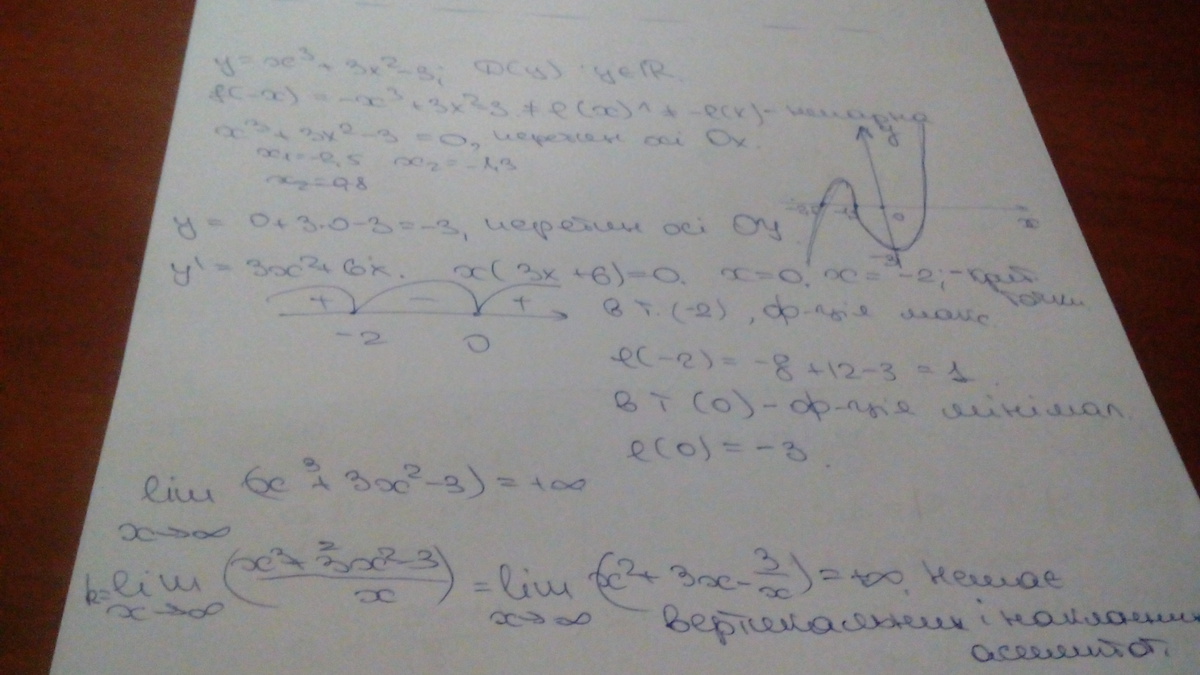 y = x³ + 3x² - 3; D(y) y∈R.
f(-x) = -x³ + 3x² - 3 ≠ f(x) ≠ -f(x) - непарна
x³ + 3x² - 3 = 0, перетин осі Ox.
x₁ = -2,5 x₂ = -1,3
x₂ = 0,8
y = 0 + 3·0 - 3 = -3, перетин осі Oy
y' = 3x² + 6x. x(3x + 6) = 0. x = 0. x = -2; - крит точки
+ - +
-2 0
в т. (-2), ф-ція макс.
f(-2) = -8 + 12 - 3 = 1.
в т (0) - ф-ція мінімал.
f(0) = -3.
y
0
x
-3
lim (x³ + 3x² - 3) = +∞
x→∞
k = lim ((x³ + 3x² - 3)/x) = lim (x² + 3x - 3/x) = +∞. Немає
x→∞ x→∞
вертикальних і наклонних
асимптот.